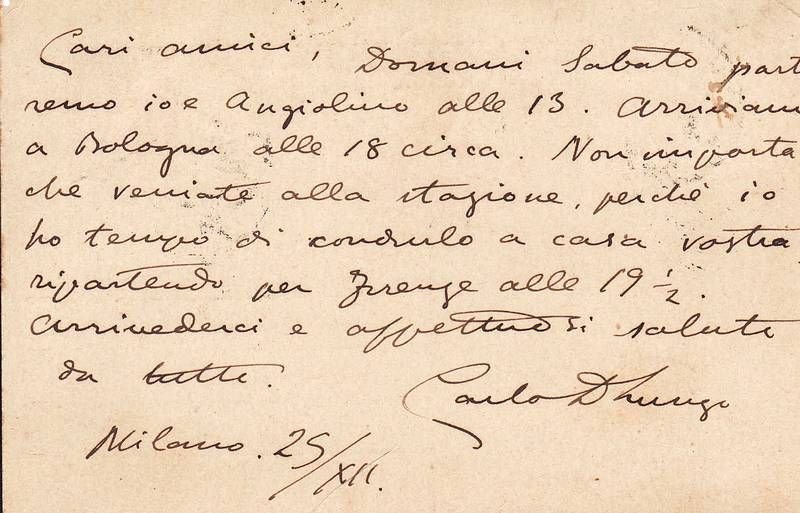 Cari amici, Domani Sabato part
remo io e Angiolino alle 13. Arriviam
a Bologna alle 18 circa. Non importa
che veniate alla stazione, perchè io
ho tempo di condurlo a casa vostra,
ripartendo per Firenze alle 19 ½.
Arrivederci e affettuosi saluti
da tutti.
Carlo
Milano. 25/XII.